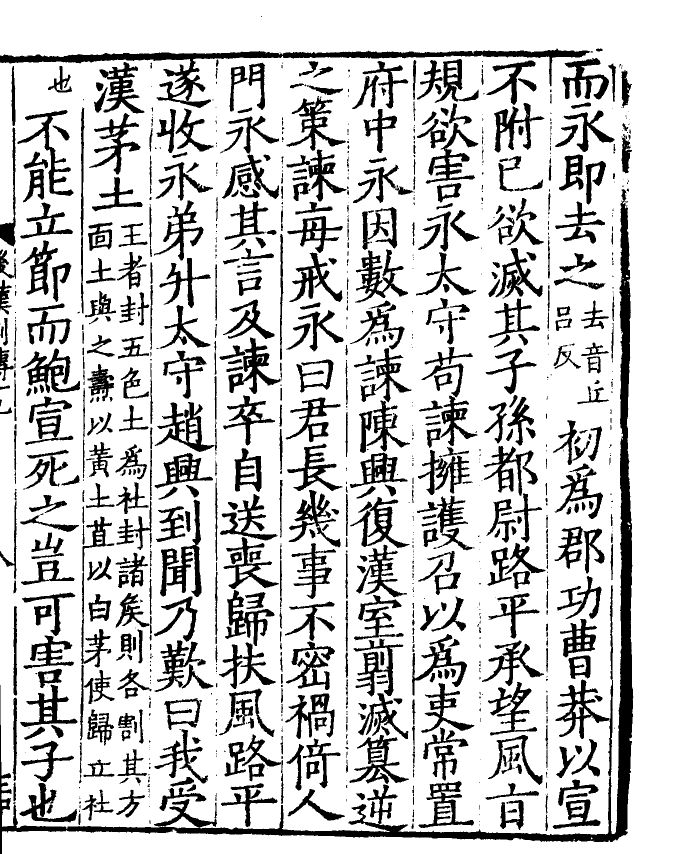 而永即去之去音丘呂反初爲郡功曹莽以宣
不附已欲滅其子孫都尉路平承望風㫖
規欲害永太守苟諫擁護召以爲吏常置
府中永因數爲諫陳興復漢室翦滅篡逆
之策諫每戒永曰君長幾事不密禍倚人
門永感其言及諫卒自送喪歸扶風路平
遂收永弟升太守趙興到聞乃歎曰我受
漢茅土王者封五色土爲社封諸矦則各割其方面土與之燾以黃土苴以白茅使歸立社
也不能立節而鮑宣死之豈可害其子也